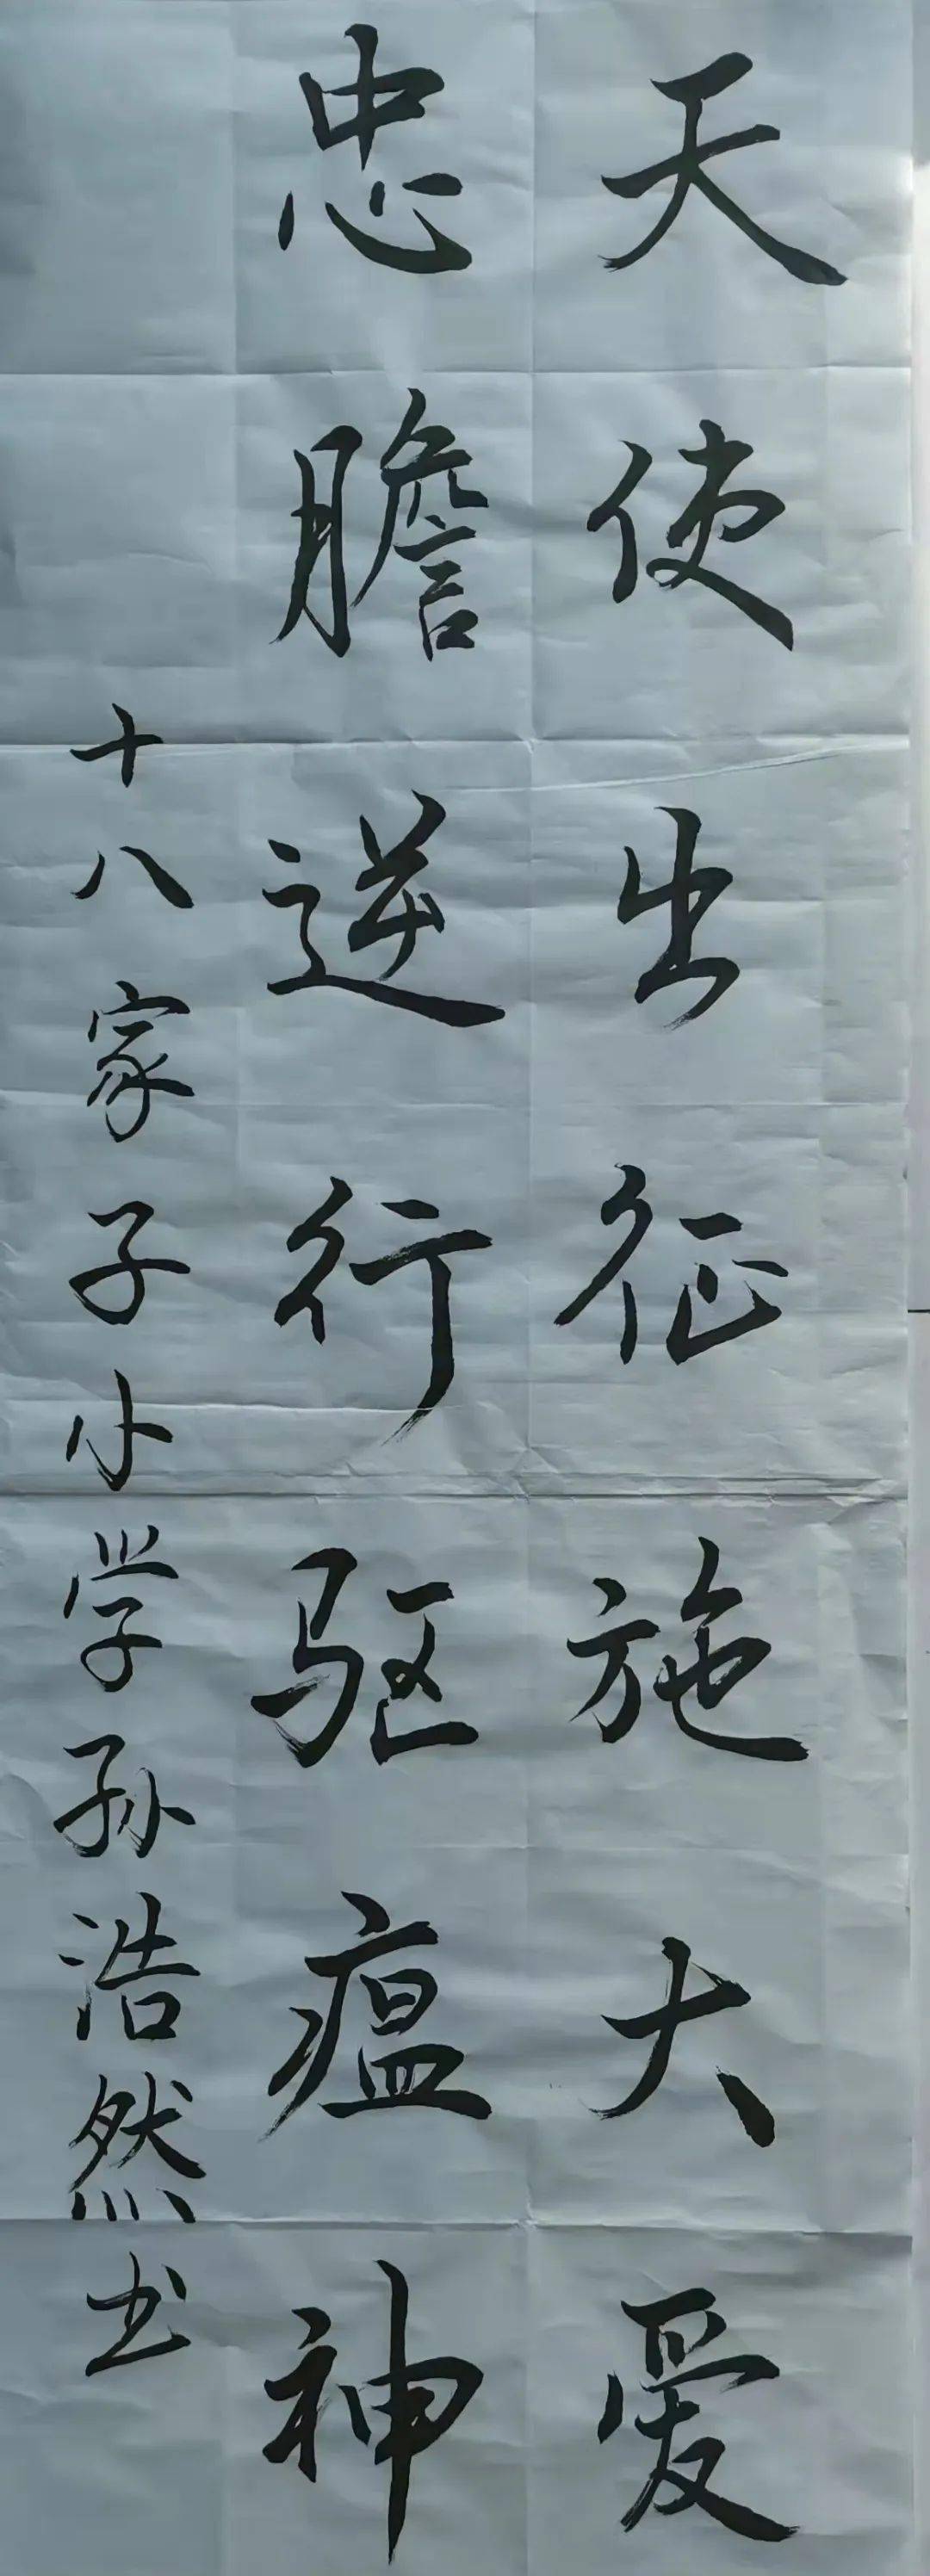 天使出征施大爱
忠膽逆行驱瘟神
十八家子小学孙浩然书